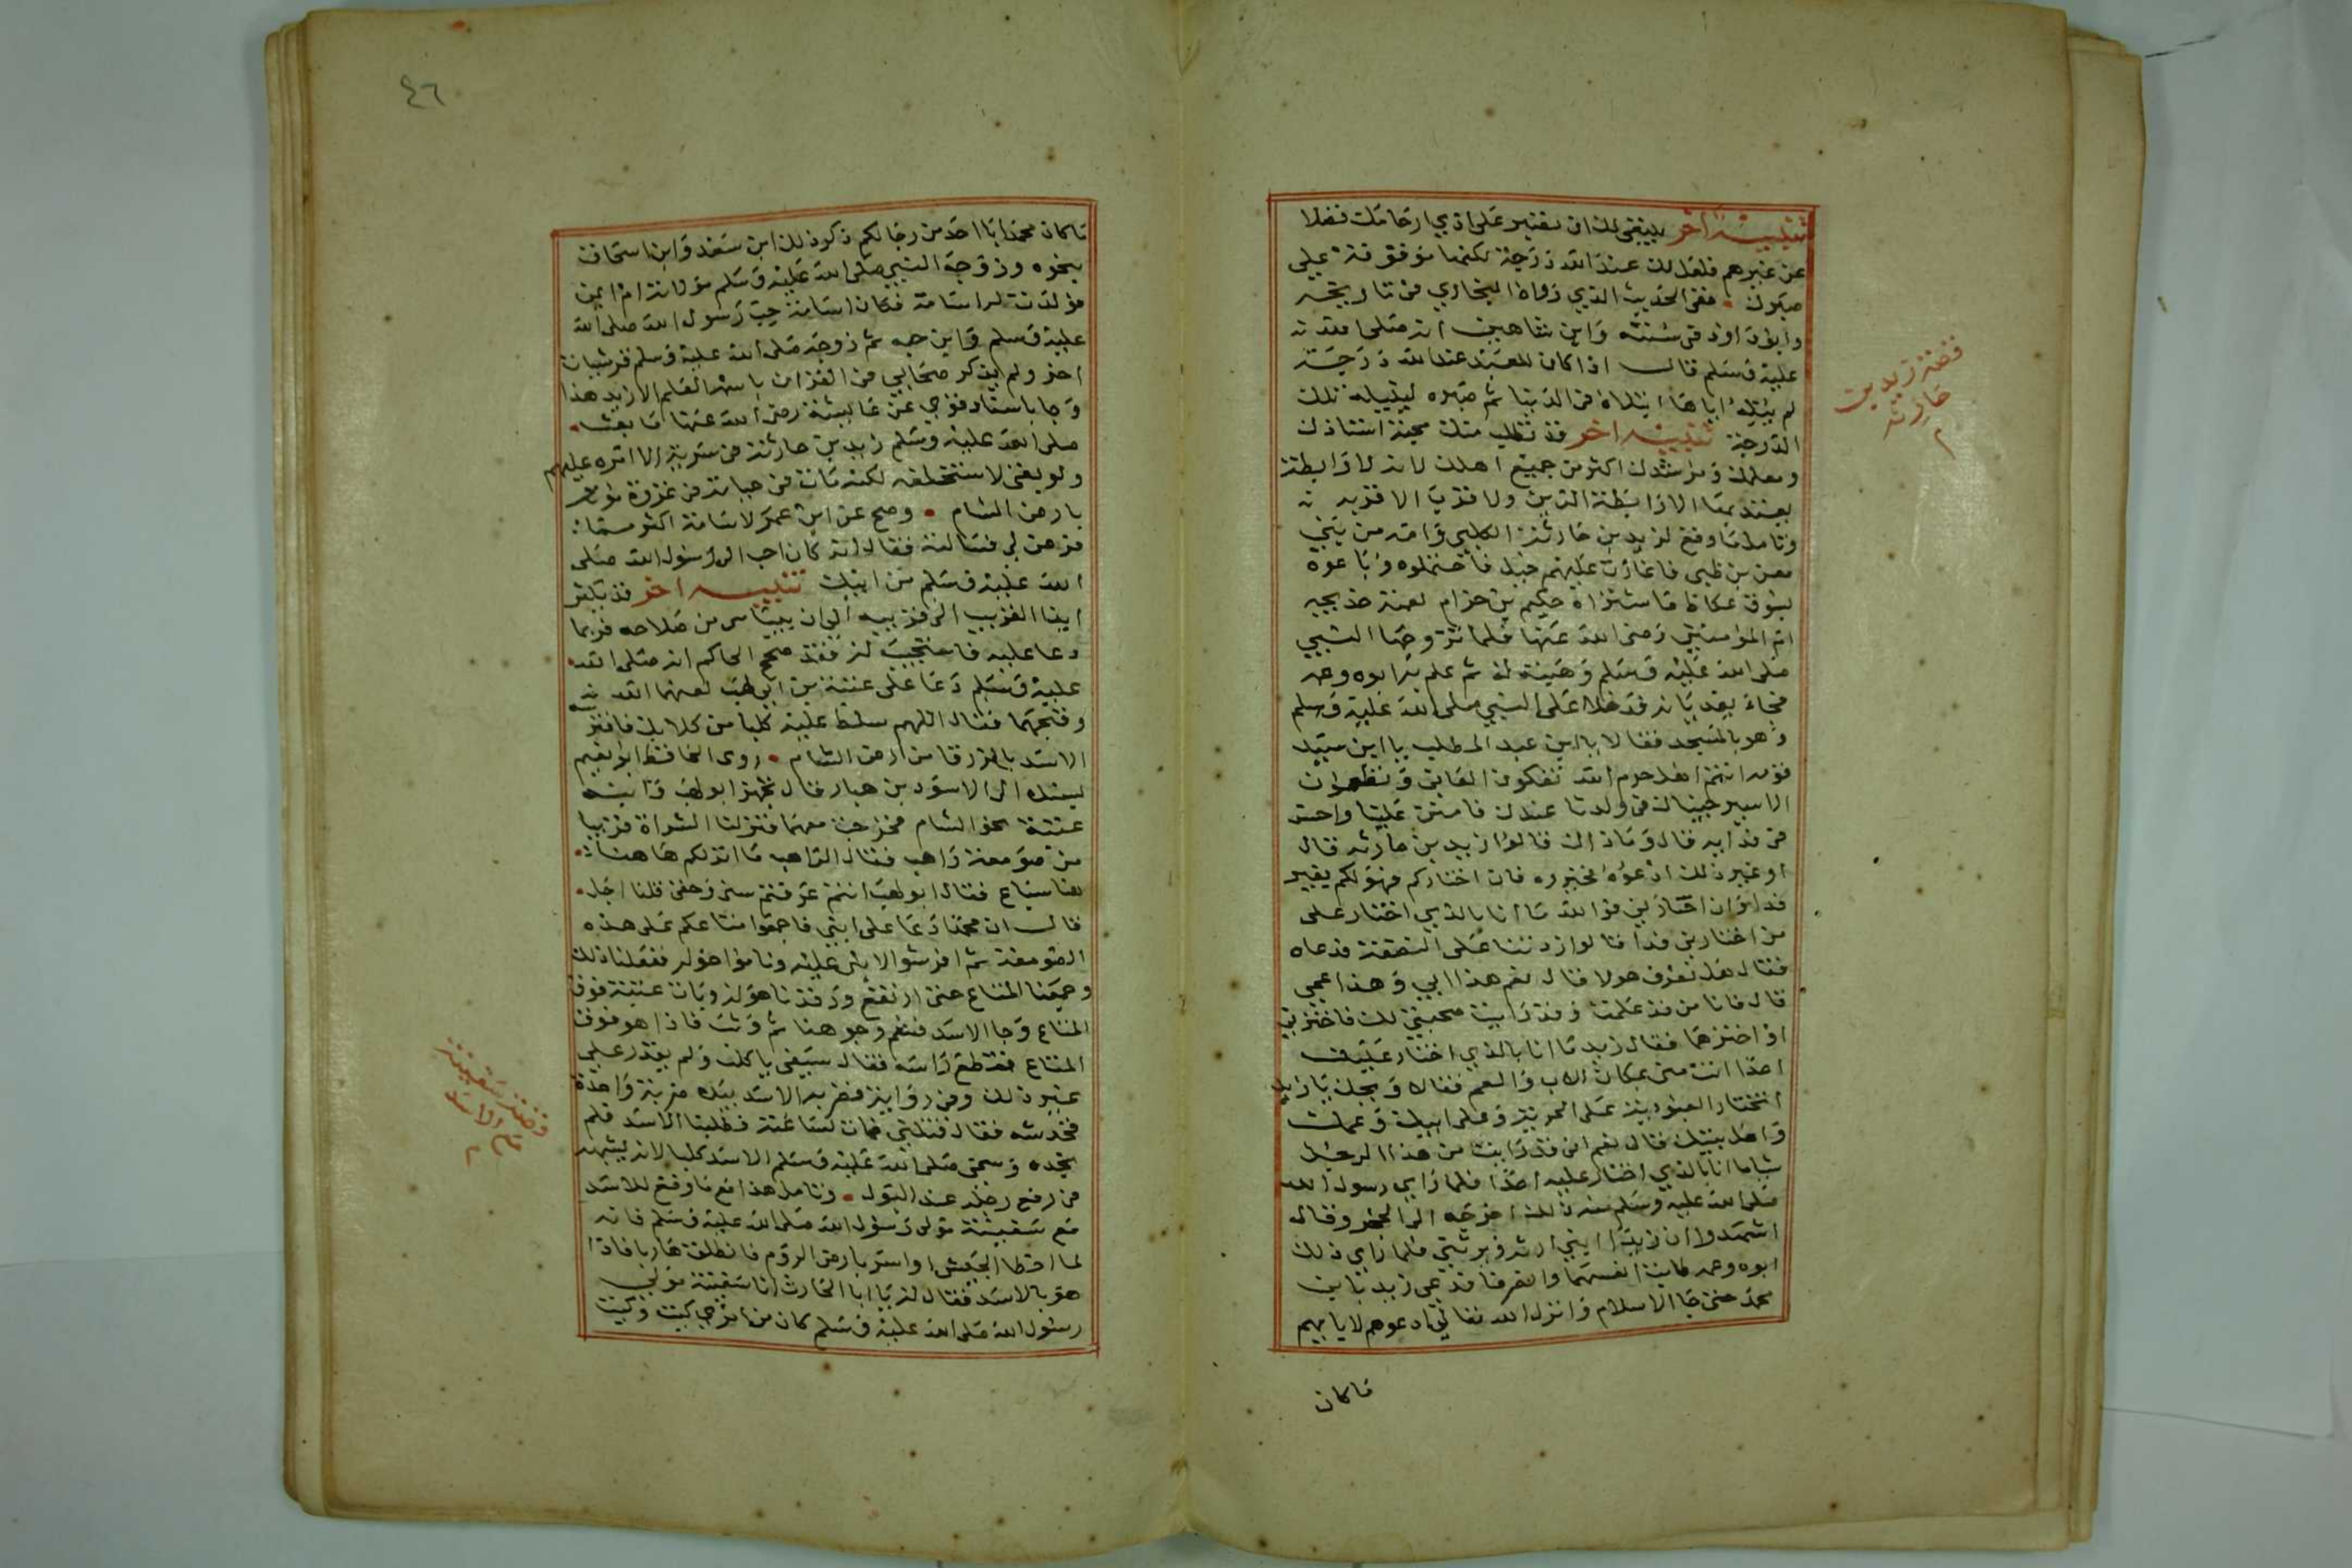 تنبيه اخر ينبغي لك ان تصبر على اذي ارحامك فضلا
عن غيرهم فلعل لك عند الله درجة لكنها موقوفة علي
صبرك ففي الحديث الذي رواه البخاري في تاريخه
وابو داود في سننه وابن شاهين انه صلى الله
عليه وسلم قال اذا كان للعبد عند الله درجة
لم ينله اياها ابتلاه في الدنيا ثم صبره لينيله تلك
الدرجة تنبيه اخر قد تطلب منك محبة استاذك
ومعلمك ومرشدك اكثر من جميع اهلك لانه لا رابطة
يعتد بها الا رابطة الدين ولا قرب الا قربه
وتامل ما وقع لزيد بن حارثة الكلبي وامه من بني
معن من طيي فاغارت عليهم خيل فاحتملوه وباعوه
بسوق عكاظ فاشتراه حكيم بن حزام لعمته خديجة
ام المؤمنين رضى الله عنها فلما تزوجها النبي
صلى الله عليه وسلم وهبته له ثم علم به ابوه وعمه
فجاء يفديانه فدخلا على النبي صلى الله عليه وسلم
وهو بالمسجد فقالا يا ابن عبد المطلب يا ابن سيد
قومه انتم اهل حرم الله تفكون العاني وتطعمون
الاسير جيناك في ولدنا عندك فامنن علينا واحسن
في فدايه قال وما ذاك قالوا زيد بن حارثه قال
او غير ذلك ادعوه فخيروه فان اختاركم فهو لكم بغير
فدا وان اختارني فوالله ما انا بالذي اختار على
من اختارني فدا قالوا زدتنا على النصفة فدعاه
فقال هل تعرف هولا قال نعم هذا ابي وهذا عمي
قال فانا من قد علمت وقد رايت صحبتي لك فاخترني
او اخترهما فقال زيد ما انا بالذي اختار عليك
احدا انت مني بمكان الاب والعم فقالا ويحك يا زيد
اتختار العبودية على الحرية وعلى ابيك وعمك
واهل بيتك قال نعم اني قد رايت من هذا الرجل
شيا ما انا بالذي اختار عليه احدا فلما راى رسول الله
صلى الله عليه وسلم منه ذلك اخرجه الى الحجر وقال
اشهدوا ان زيدا ابني ارثه ويرثني فلما راي ذلك
ابوه وعمه طابت انفسهما وانصرفا فدعي زيد بن
محمد حتى جا الاسلام وانزل الله تعالى ادعوهم لابايهم
ما كان
قصة زيد بن
حارثة
٤٦
ما كان محمد ابا احد من رجالكم ذكر ذلك ابن سعد وابن اسحاق
بنحوه وزوجه النبي صلى الله عليه وسلم مولاته ام ايمن
فولدت له اسامة فكان اسامة حب رسول الله صلى الله
عليه وسلم وابن حبه ثم زوجه صلى الله عليه وسلم قرشيات
اخر ولم يذكر صحابي في القران باسمه العلم الا زيد هذا
وجا باسناد قوي عن عايشة رضى الله عنها ما بعث
صلى الله عليه وسلم زيد بن حارثة في سرية الا امره عليهم
ولو بقي لاستخلفه لكنه مات في حياته في غزوة موته
بارض الشام وصح عن ابن عمر لاسامة اكثر مما
فرض لي فسالته فقال انه كان احب الى رسول الله صلى
الله عليه وسلم من ابيك تنبيه اخر قد يكثر
ايذا القريب الى قريبه الى ان يياس من صلاحه فربما
دعا عليه فاستجيب له فقد صحح الحاكم انه صلى الله
عليه وسلم دعا على عتبة بن ابي لهب لعنهما الله
وقبحهما فقال اللهم سلط عليه كلبا من كلابك فافترسه
الاسد بالزرقا من ارض الشام روى الحافظ ابو نعيم
بسنده الى الاسود بن هبار قال تجهز ابو لهب وابنه
عتبة نحو الشام فخرجت معهما فنزلنا الشراة قريبا
من صومعة راهب فقال الراهب ما انزلكم هاهنا
هنا سباع فقال ابو لهب انتم عرفتم سني وحقي قلنا اجل
قال ان محمدا دعا على ابني فاجمعوا متاعكم على هذه
الصومعة ثم افرشوا لابني عليه وناموا حوله ففعلنا ذلك
وجمعنا المتاع حتى ارتفع ورقدنا حوله وبات عتبة فوق
المتاع وجا الاسد فشم وجوهنا ثم وثب فاذا هو فوق
المتاع فقطع راسه فقال سيفي يا كلب ولم يقدر علي
غير ذلك وفي رواية فضربه الاسد بيده ضربة واحدة
فخدشه فقال قتلني فمات لساعته فطلبنا الاسد فلم
نجده وسمى صلى الله عليه وسلم الاسد كلبا لانه يشبهه
في رفع رجله عند البول وتامل هذا مع ما وقع للاسد
مع سفينة مولى رسول الله صلى الله عليه وسلم فانه
لما اخطا الجيش او اسر بارض الروم فانطلق هاربا فاذا
هو بالاسد فقال له يا ابا الحارث انا سفينة مولى
رسول الله صلى الله عليه وسلم كان من امري كيت وكيت
قصة سفينة
مع الاسد